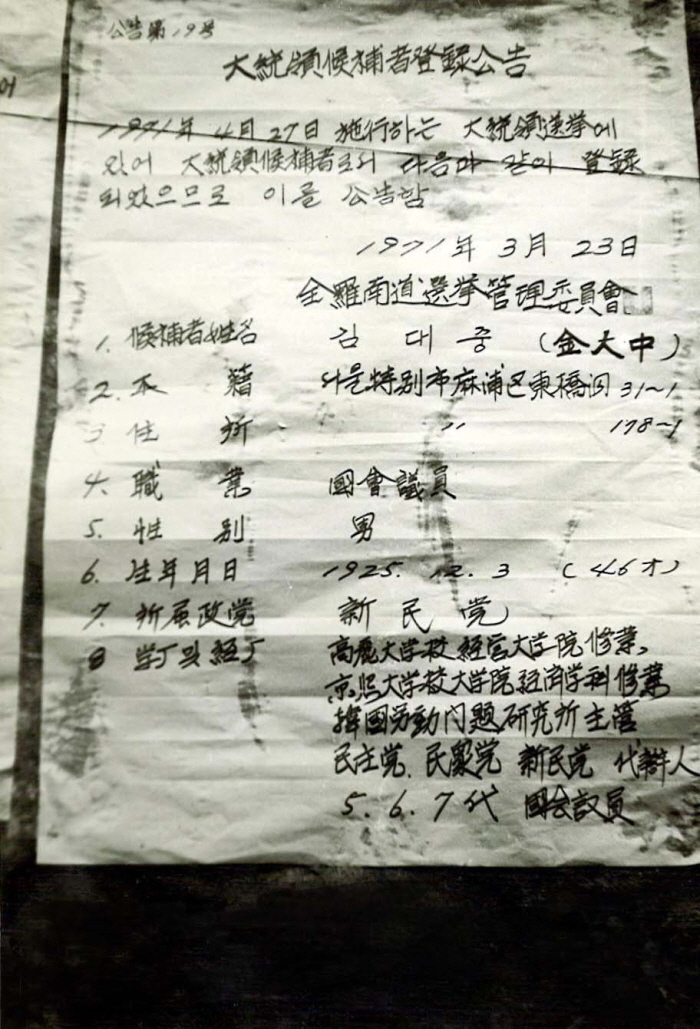 公告第19号
大統領候補者登録公告
1971年 4月 27日 施行하는 大統領選挙에
있어 大統領候補者로서 다음과 같이 登録
되었으므로 이를 公告함
1971年 3月 23日
全羅南道選挙管理委員會
1. 候補者姓名 김 대 중 (金大中)
2. 本 籍 서울特別市麻浦区東橋洞 31~1
3 住 所 〃 178~1
4. 職 業 國會議員
5. 性 別 男
6. 生年月日 1925. 12. 3 (46才)
7. 所属政党 新民党
8 学厂및経厂 高麗大学校 経営大学院 修業
京熙大学校大学院経済学科修業
韓國労動问题研究所主管
民主党. 民衆党 新民党 代辯人
5. 6. 7代 國会议員